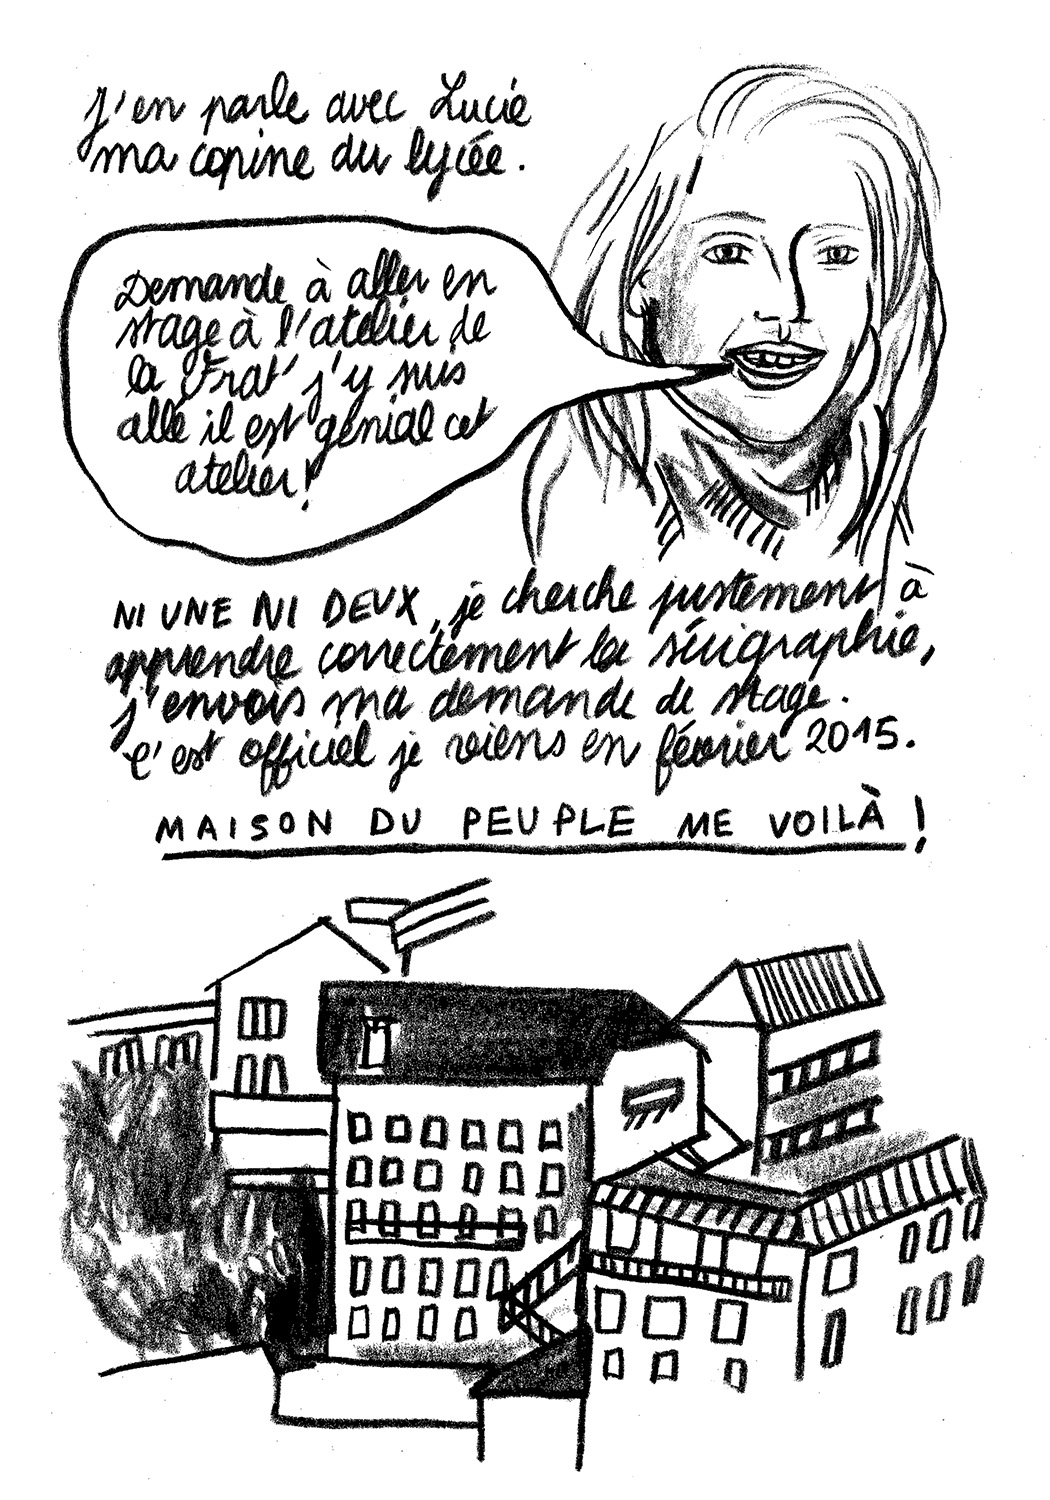 J'en parle avec Lucie
ma copine du lycée.
Demande à aller en
stage à l'atelier de
la Frat' j'y suis
allé il est génial cet
atelier!
NI UNE NI DEUX, je cherche justement à
apprendre correctement la sérigraphie,
j'envois ma demande de stage.
C'est officiel je viens en février 2015.
MAISON DU PEUPLE ME VOILÀ !